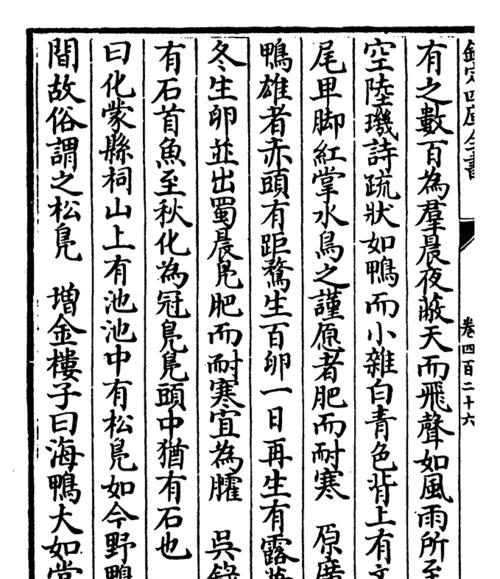 欽定四庫全書
卷四百二十六
有之數百為羣晨夜蔽天而飛聲如風雨所至
空陸璣詩疏狀如鴨而小雜白青色背上有文
尾甲脚紅掌水鳥之謹愿者肥而耐寒 原廣
鴨雄者赤頭有距鶩生百卵一日再生有露華
冬生卵並出蜀晨鳧肥而耐寒宜為臛 吳錄
有石首魚至秋化為冠鳧鳧頭中猶有石也
曰化蒙縣祠山上有池池中有松鳧如今野鴨
閒故俗謂之松鳧 增金樓子曰海鴨大如常